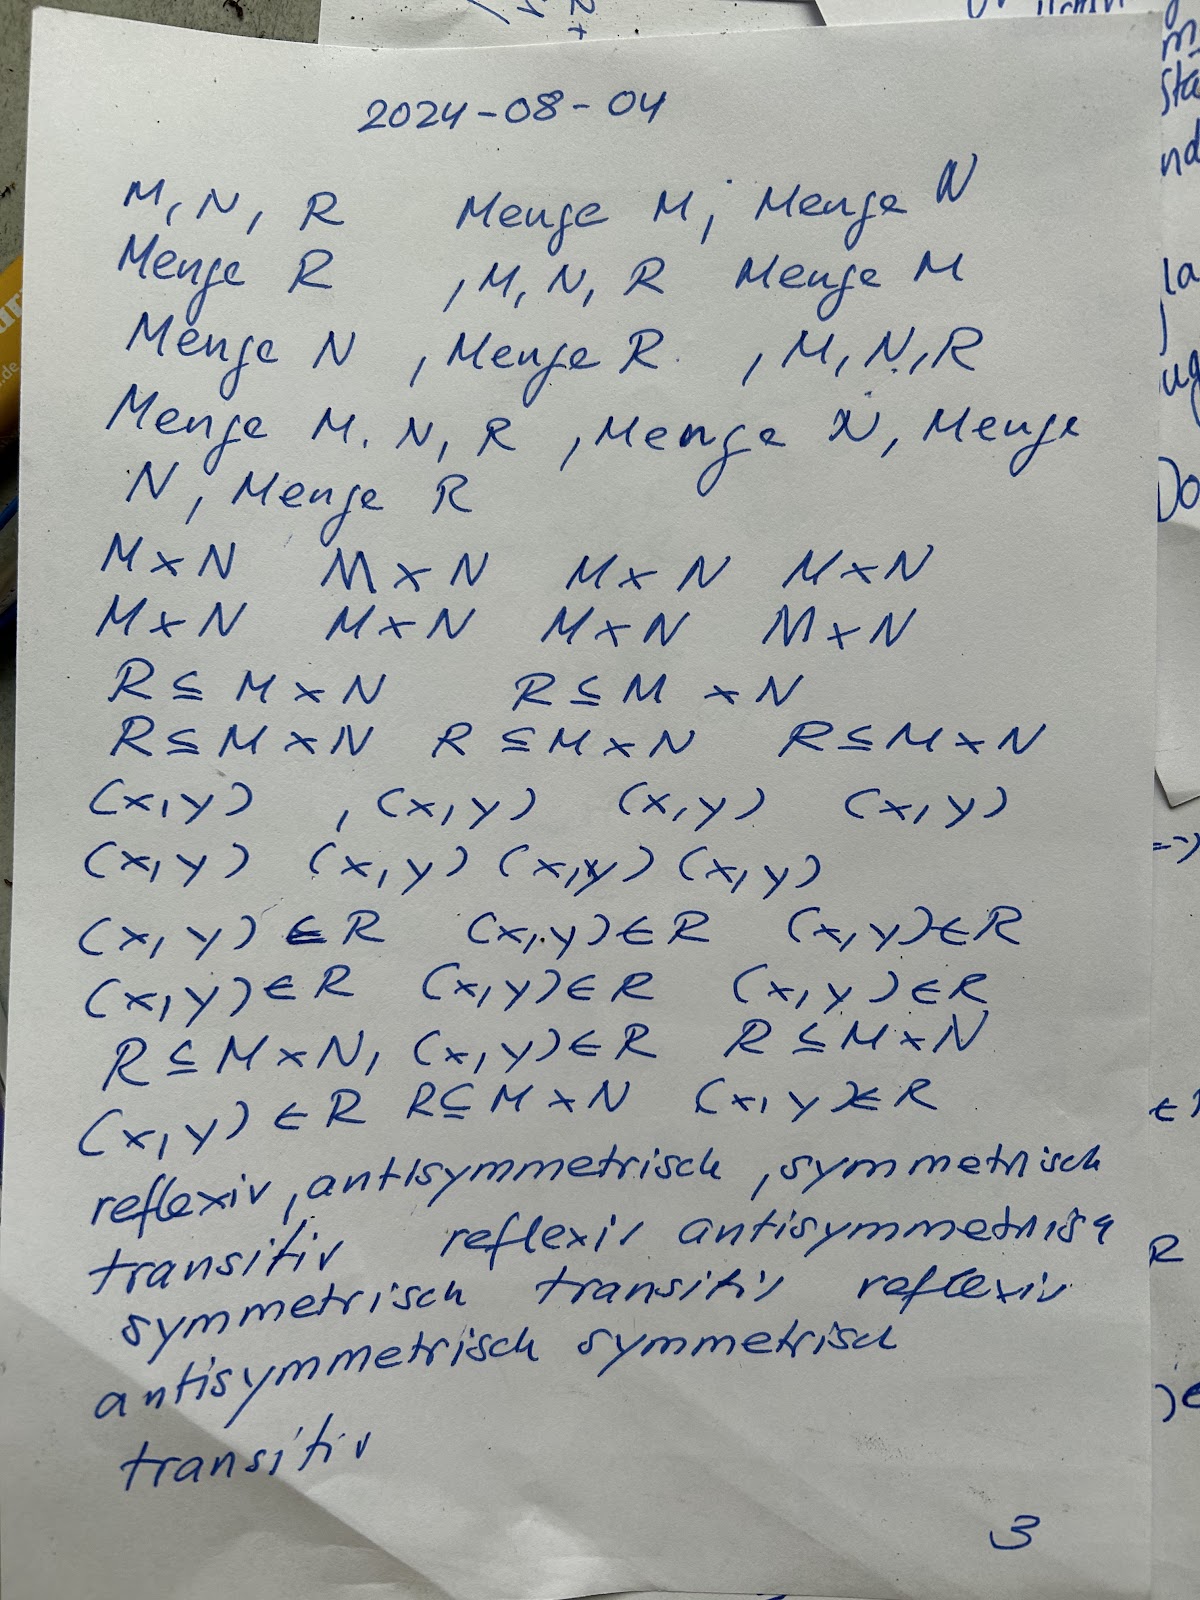 2024-08-04
M, N, R Menge M, Menge N
Menge R , M, N, R Menge M
Menge N , Menge R , M, N, R
Menge M. N, R , Menge N, Menge
N, Menge R
M×N M×N M×N M×N
M×N M×N M×N M×N
R ⊆ M × N R ⊆ M × N
R ⊆ M × N R ⊆ M × N R ⊆ M × N
(x,y) , (x,y) (x,y) (x,y)
(x,y) (x,y) (x,y) (x,y)
(x,y) ∈ R (x,y) ∈ R (x,y) ∈ R
(x,y) ∈ R (x,y) ∈ R (x,y) ∈ R
R ⊆ M × N, (x,y) ∈ R R ⊆ M × N
(x,y) ∈ R R ⊆ M × N (x,y) ∈ R
reflexiv, antisymmetrisch, symmetrisch
transitiv reflexiv antisymmetrisch
symmetrisch transitiv reflexiv
antisymmetrisch symmetrisch
transitiv
3